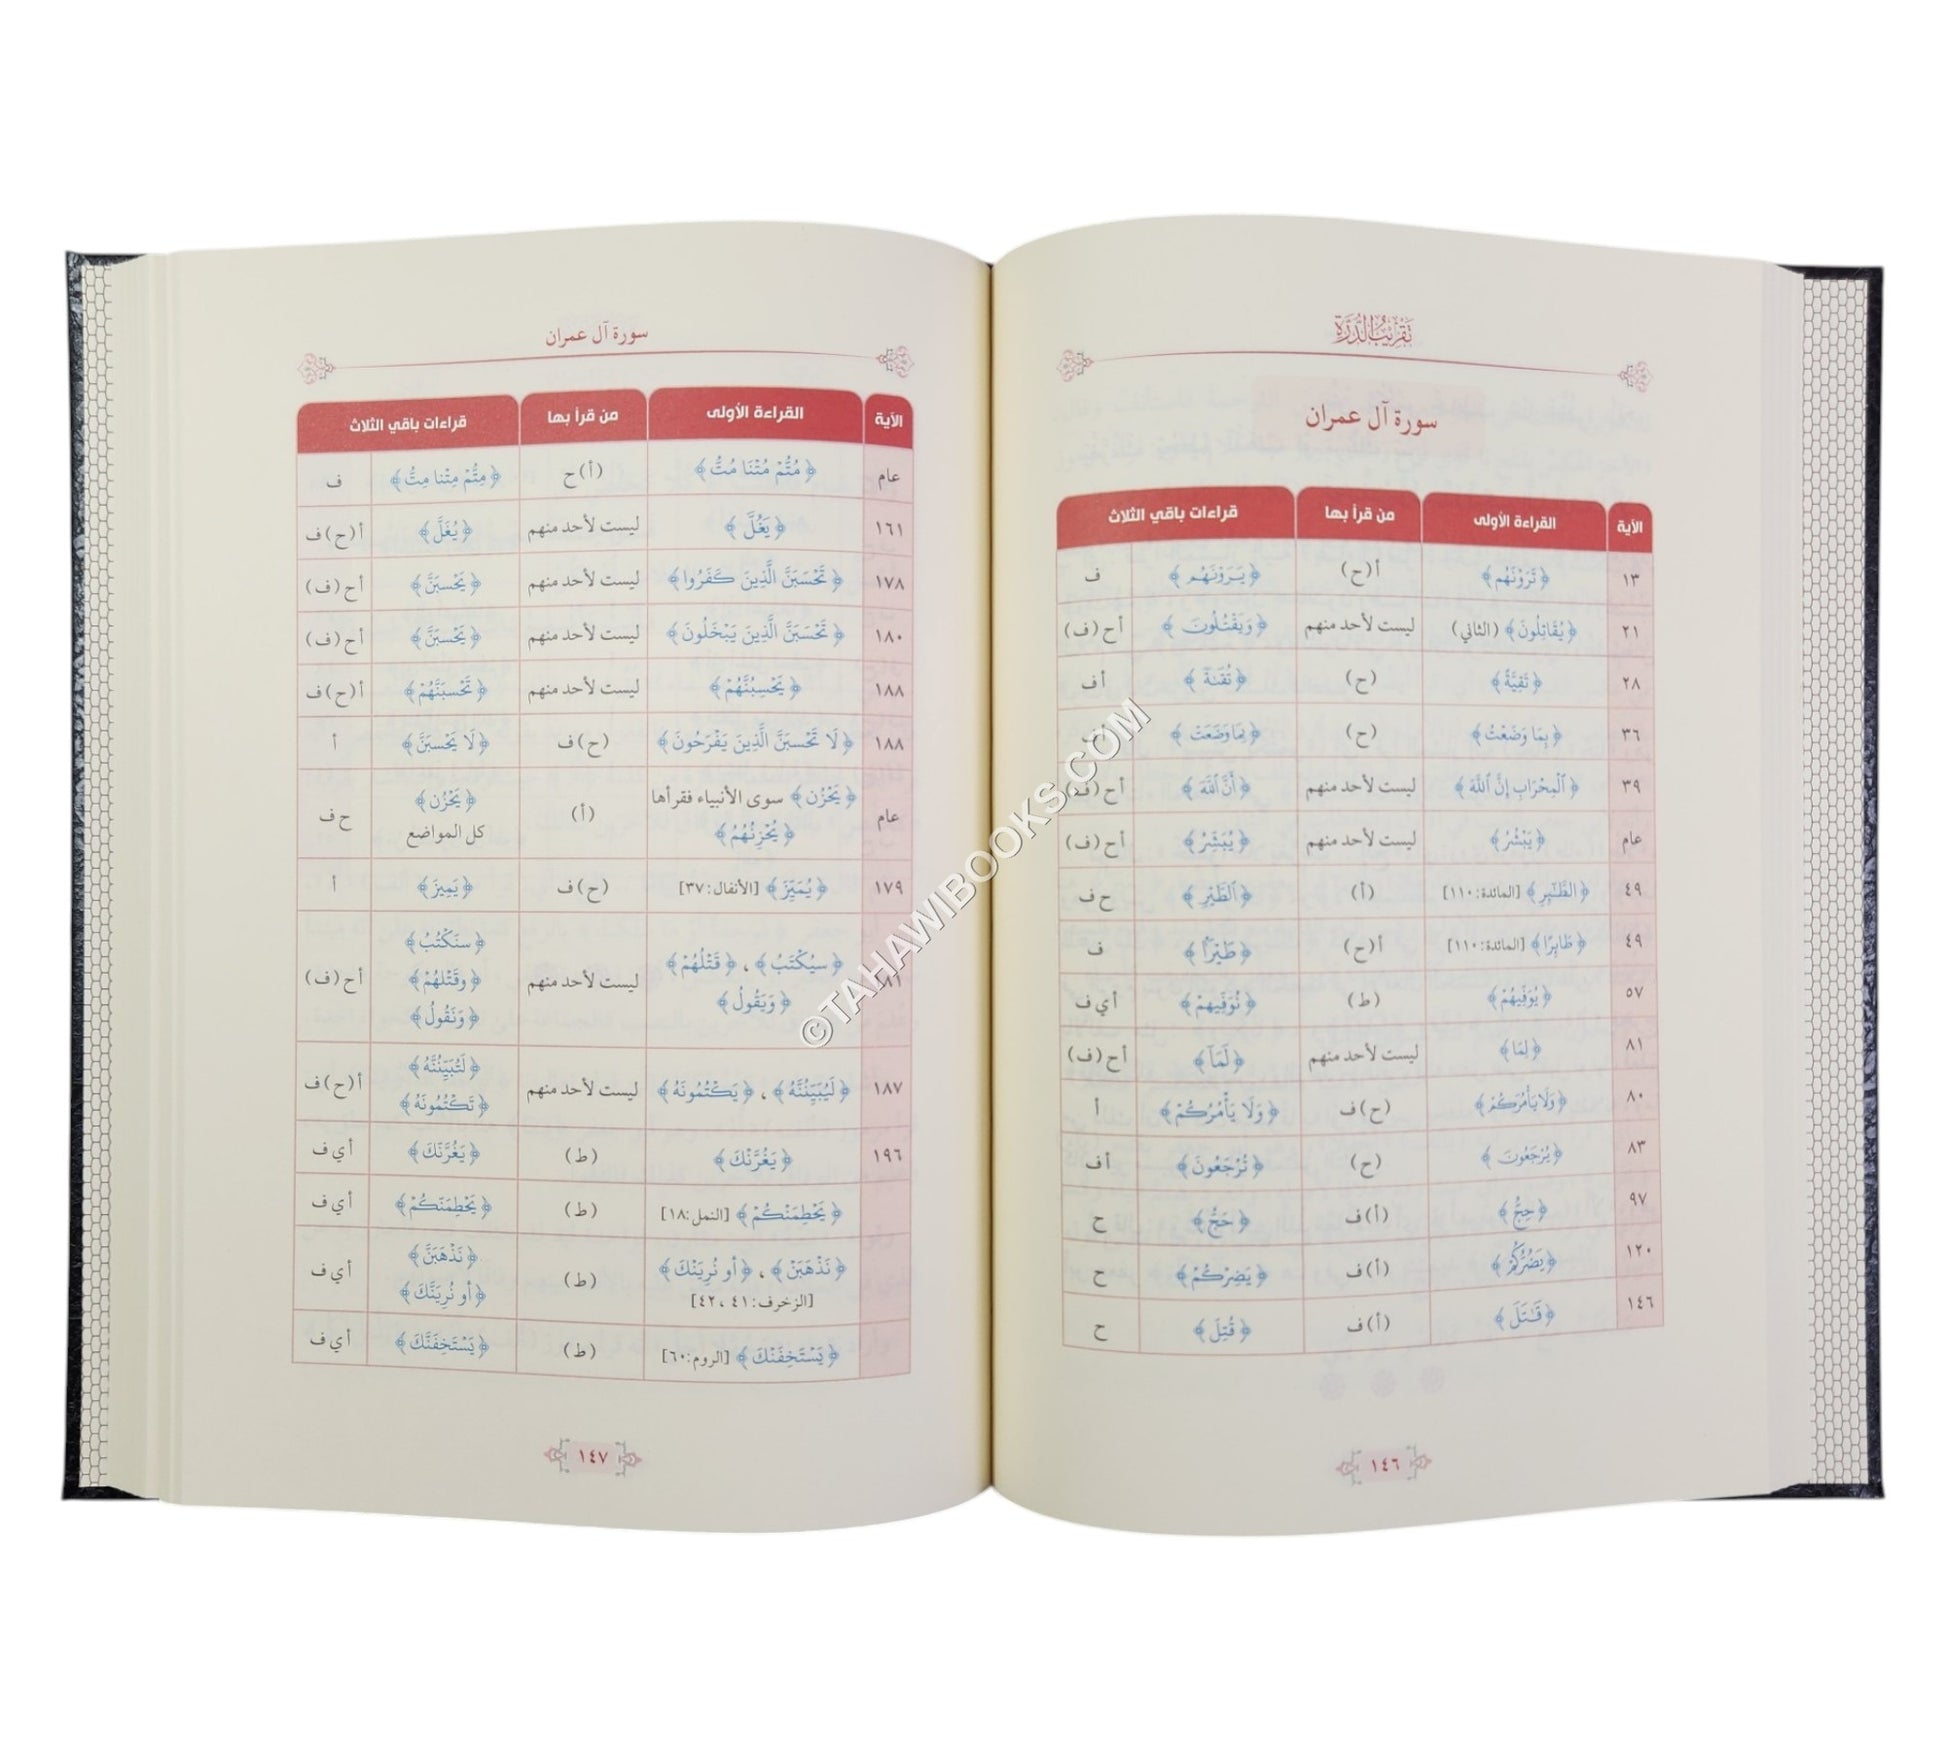 تقريب الدرة
سورة آل عمران
الآية القراءة الأولى من قرأ بها قراءات باقي الثلاث
١٣ ﴿تَرَوْنَهُم﴾ أ(ح) ﴿يَرَوْنَهُم﴾ ف
٢١ ﴿يُقَاتِلُونَ﴾ (الثاني) ليست لأحد منهم ﴿وَيَقْتُلُونَ﴾ أح(ف)
٢٨ ﴿تَقِيَّةً﴾ (ح) ﴿تُقَىٰةً﴾ أف
٣٦ ﴿بِمَا وَضَعْتُ﴾ (ح) ﴿بِمَا وَضَعَتْ﴾ أف
٣٩ ﴿ٱلْمِحْرَابِ إِنَّ ٱللَّهَ﴾ ليست لأحد منهم ﴿أَنَّ ٱللَّهَ﴾ أح(ف)
عام ﴿يَبْشُرُ﴾ ليست لأحد منهم ﴿يُبَشِّرُ﴾ أح(ف)
٤٩ ﴿ٱلطَّـٰٓئِرِ﴾ [المائدة: ١١٠] (أ) ﴿ٱلطَّيْرِ﴾ ح ف
٤٩ ﴿طَائِرًا﴾ [المائدة: ١١٠] أ(ح) ﴿طَيْرًا﴾ ف
٥٧ ﴿يُوَفِّيهُمْ﴾ (ط) ﴿نُوَفِّيهِمْ﴾ أي ف
٨١ ﴿لِمَا﴾ ليست لأحد منهم ﴿لَمَا﴾ أح(ف)
٨٠ ﴿وَلَا يَأْمُرَكُمْ﴾ (ح) ف ﴿وَلَا يَأْمُرُكُمْ﴾ أ
٨٣ ﴿يُرْجَعُونَ﴾ (ح) ﴿تُرْجَعُونَ﴾ أف
٩٧ ﴿حِجُّ﴾ (أ) ف ﴿حَجُّ﴾ ح
١٢٠ ﴿يَضُرُّكُمْ﴾ (أ) ف ﴿يَضِرْكُمْ﴾ ح
١٤٦ ﴿قَـٰتَلَ﴾ (أ) ف ﴿قُتِلَ﴾ ح
١٤٦
سورة آل عمران
الآية القراءة الأولى من قرأ بها قراءات باقي الثلاث
عام ﴿مُتُّمْ مُتْنَا مُتُّ﴾ (أ) ح ﴿مِتُّمْ مِتْنَا مِتُّ﴾ ف
١٦١ ﴿يَغُلَّ﴾ ليست لأحد منهم ﴿يُغَلَّ﴾ أ(ح) ف
١٧٨ ﴿تَحْسَبَنَّ الَّذِينَ كَفَرُوا﴾ ليست لأحد منهم ﴿يَحْسَبَنَّ﴾ أح(ف)
١٨٠ ﴿تَحْسَبَنَّ الَّذِينَ يَبْخَلُونَ﴾ ليست لأحد منهم ﴿يَحْسَبَنَّ﴾ أح(ف)
١٨٨ ﴿يَحْسِبُنَّهُمْ﴾ ليست لأحد منهم ﴿تَحْسَبَنَّهُمْ﴾ أ(ح) ف
١٨٨ ﴿لَا تَحْسَبَنَّ الَّذِينَ يَفْرَحُونَ﴾ (ح) ف ﴿لَا يَحْسَبَنَّ﴾ أ
عام ﴿يَحْزُن﴾ سوى الأنبياء فقرأها (أ) ﴿يَحْزُن﴾ ح ف
﴿يُحْزِنُهُمُ﴾ كل المواضع
١٧٩ ﴿يُمَيِّزَ﴾ [الأنفال: ٣٧] (ح) ف ﴿يَمِيزَ﴾ أ
﴿سَنَكْتُبُ﴾
٨١ ﴿سَيُكْتَبُ﴾ ، ﴿قَتْلُهُمْ﴾ ليست لأحد منهم ﴿وَقَتْلَهُمْ﴾ أح(ف)
﴿وَيَقُولُ﴾ ﴿وَنَقُولُ﴾
١٨٧ ﴿لَيُبَيِّنُنَّهُ﴾ ، ﴿يَكْتُمُونَهُ﴾ ليست لأحد منهم ﴿لَتُبَيِّنُنَّهُ﴾ أ(ح) ف
﴿تَكْتُمُونَهُ﴾
١٩٦ ﴿يَغُرَّنْكَ﴾ (ط) ﴿يَغُرَّنَّكَ﴾ أي ف
﴿يَحْطِمَنْكُمْ﴾ [النمل: ١٨] (ط) ﴿يَحْطِمَنَّكُمْ﴾ أي ف
﴿نَذْهَبَنْ﴾ ، ﴿أو نُرِيَنْكَ﴾ (ط) ﴿نَذْهَبَنَّ﴾ أي ف
[الزخرف: ٤١، ٤٢] ﴿أو نُرِيَنَّكَ﴾
﴿يَسْتَخِفَنْكَ﴾ [الروم: ٦٠] (ط) ﴿يَسْتَخِفَنَّكَ﴾ أي ف
١٤٧
©TAHAWIBOOKS.COM